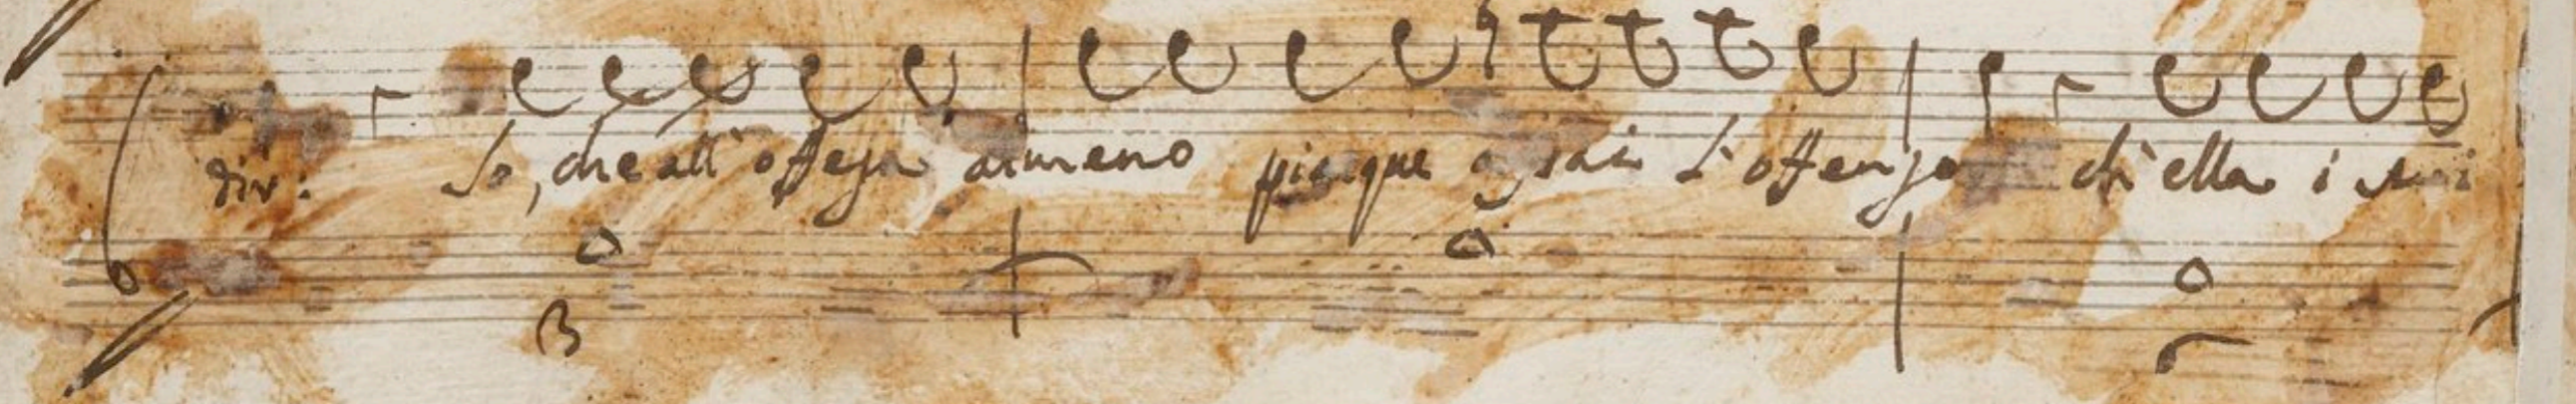 dir: So, che all'offesa almeno piacque assai L'offensa ch'ella i